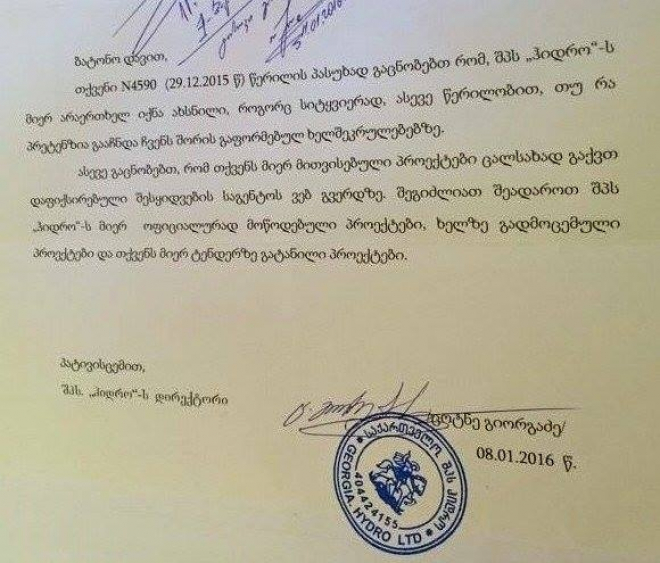 ბატონო დავით,
თქვენი N4590 (29.12.2015 წ) წერილის პასუხად გაცნობებთ რომ, შპს „ჰიდრო“-ს
მიერ არაერთხელ იქნა ახსნილი, როგორც სიტყვიერად, ასევე წერილობით, თუ რა
პრეტენზია გააჩნდა ჩვენს შორის გაფორმებულ ხელშეკრულებებზე.
ასევე გაცნობებთ, რომ თქვენს მიერ მითვისებული პროექტები ცალსახად გაქვთ
დაფიქსირებული შესყიდვების საგენტოს ვებ გვერდზე. შეგიძლიათ შეადაროთ შპს
„ჰიდრო“-ს მიერ ოფიციალურად მოწოდებული პროექტები, ხელზე გადმოცემული
პროექტები და თქვენს მიერ ტენდერზე გატანილი პროექტები.
პატივისცემით,
შპს. „ჰიდრო“-ს დირექტორი
/ცოტნე გიორგაძე/
08.01.2016 წ.
საქართველო. შპს ჰიდრო
404424155
GEORGIA. HYDRO LTD